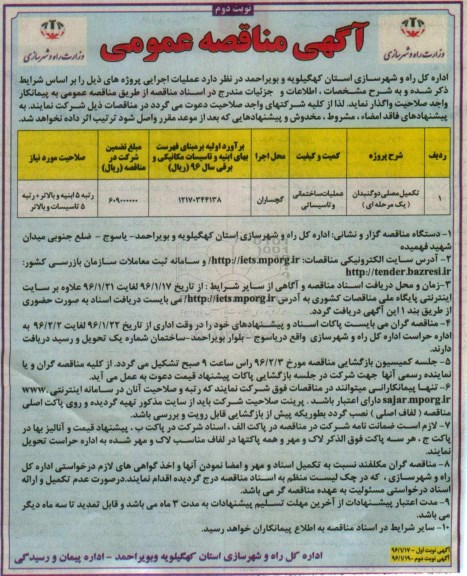 نوبت دوم
آگهی مناقصه عمومی
وزارت راه و شهرسازی
وزارت راه و شهرسازی
اداره کل راه و شهرسازی استان کهگیلویه و بویراحمد در نظر دارد عملیات اجرایی پروژه های ذیل را بر اساس شرایط
ذکر شده و به شرح مشخصات ، اطلاعات و جزئیات مندرج در اسناد مناقصه از طریق مناقصه عمومی به پیمانکار
واجد صلاحیت واگذار نماید. لذا از کلیه شرکتهای واجد صلاحیت دعوت می گردد در مناقصات ذیل شرکت نمایند. به
پیشنهادهای فاقد امضاء ، مشروط ، مخدوش و پیشنهادهایی که بعد از موعد مقرر واصل شود ترتیب اثر داده نخواهد شد.
ردیف شرح پروژه کمیت و کیفیت محل اجرا برآورد اولیه برمبنای فهرست بهای ابنیه و تاسیسات مکانیکی و برقی سال ۹۶ (ریال) مبلغ تضمین شرکت در مناقصه (ریال) صلاحیت مورد نیاز
۱ تکمیل مصلی دوگنبدان ( یک مرحله ای ) عملیات ساختمانی و تاسیساتی گچساران ۱۲۱۷۰۳۴۴۱۳۸ ۶۰۹۰۰۰۰۰۰ رتبه ۵ ابنیه و بالاتر + رتبه ۵ تاسیسات و بالاتر
۱- دستگاه مناقصه گزار و نشانی: اداره کل راه و شهرسازی استان کهگیلویه و بویراحمد- یاسوج - ضلع جنوبی میدان
شهید فهمیده
۲- آدرس سایت الکترونیکی مناقصات: http://iets.mporg.ir/ و سامانه ثبت معاملات سازمان بازرسی کشور:
http://tender.bazresi.ir
۳-زمان و محل دریافت اسناد مناقصه و آگاهی از سایر شرایط : از تاریخ ۹۶/۱/۱۷ لغایت ۹۶/۱/۲۱ علاوه بر سایت
اینترنتی پایگاه ملی مناقصات کشوری به آدرس http://iets.mporg.ir/ می بایست دریافت اسناد به صورت حضوری
از طریق بند ۱ این آگهی دریافت گردد.
۴- مناقصه گران می بایست پاکات اسناد و پیشنهادهای خود را در وقت اداری از تاریخ ۹۶/۱/۲۲ لغایت ۹۶/۲/۲ به
اداره حراست اداره کل راه و شهرسازی واقع دریاسوج - بلوار بویراحمد-ساختمان شماره یک تحویل و رسید دریافت
دارند.
۵- جلسه کمیسیون بازگشایی مناقصه مورخ ۹۶/۲/۳ راس ساعت ۹ صبح تشکیل می گردد. از کلیه مناقصه گران و یا
نماینده رسمی آنها جهت شرکت در جلسه بازگشایی پاکات پیشنهاد قیمت دعوت به عمل می آید.
۶- تنها پیمانکارانی میتوانند در مناقصات فوق شرکت نمایند که رتبه و صلاحیت آنان در سامانه اینترنتی www.
sajar.mporg.ir دارای اعتبار باشد . پرینت صلاحیت شرکت باید از سایت مذکور تهیه گردیده و روی پاکت اصلی
مناقصه ( لفاف اصلی ) نصب گردد بطوریکه پیش از بازگشایی قابل رویت و بررسی باشد.
۷- لازم است ضمانت نامه شرکت در مناقصه در پاکت الف ، اسناد شرکت در پاکت ب ، پیشنهاد قیمت و آنالیز بها در
پاکت ج ، هر سه پاکت فوق الذکر لاک و مهر و همه پاکتها در لفاف مناسب لاک و مهر شده به اداره حراست تحویل
نمایند.
۸- مناقصه گران مکلفند نسبت به تکمیل اسناد و مهر و امضا نمودن آنها و اخذ گواهی های لازم درخواستی اداره کل
راه و شهرسازی ، که در چک لیست منظم به اسناد مناقصه درج گردیده اقدام نمایند.درصورت عدم تکمیل و ارائه
اسناد درخواستی مسئولیت به عهده مناقصه گر می باشد.
۹- مدت اعتبار پیشنهادات از آخرین مهلت تسلیم پیشنهادات به مدت ۳ ماه می باشد و قابل تمدید تا سه ماه دیگر
می باشد.
۱۰- سایر شرایط در اسناد مناقصه به اطلاع پیمانکاران خواهد رسید.
آگهی نوبت اول - ۹۶/۱/۱۷
آگهی نوبت دوم - ۹۶/۱/۱۹
اداره کل راه و شهرسازی استان کهگیلویه وبویراحمد - اداره پیمان و رسیدگی